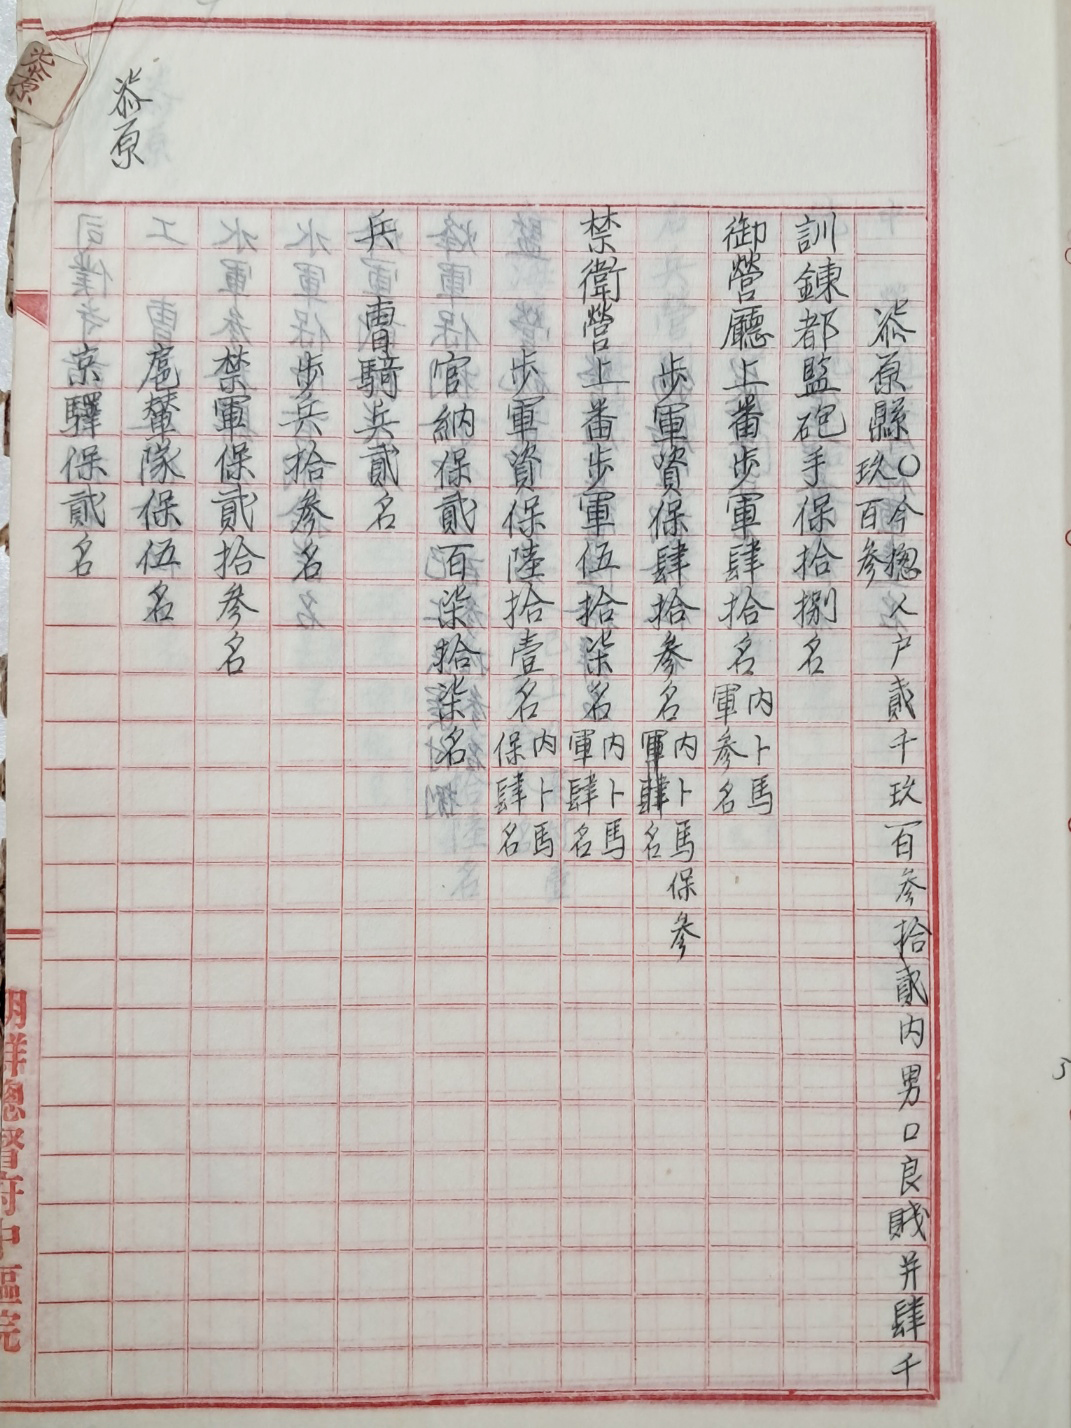 柒原
柒原縣〇今摠人户貳千玖百參拾貳内男口良賤并肆千
玖百參
訓鍊都監砲手保拾捌名
御營廳上番步軍肆拾名内卜馬
軍參名
步軍資保肆拾參名内卜馬保參
軍肆名
禁衛營上番步軍伍拾柒名内卜馬
軍肆名
步軍資保陸拾壹名内卜馬
保肆名
官納保貳百柒拾柒名
兵曹騎兵貳名
步兵拾參名
禁軍保貳拾參名
扈輦隊保伍名
京驛保貳名
柒原
朝鮮總督府中樞院